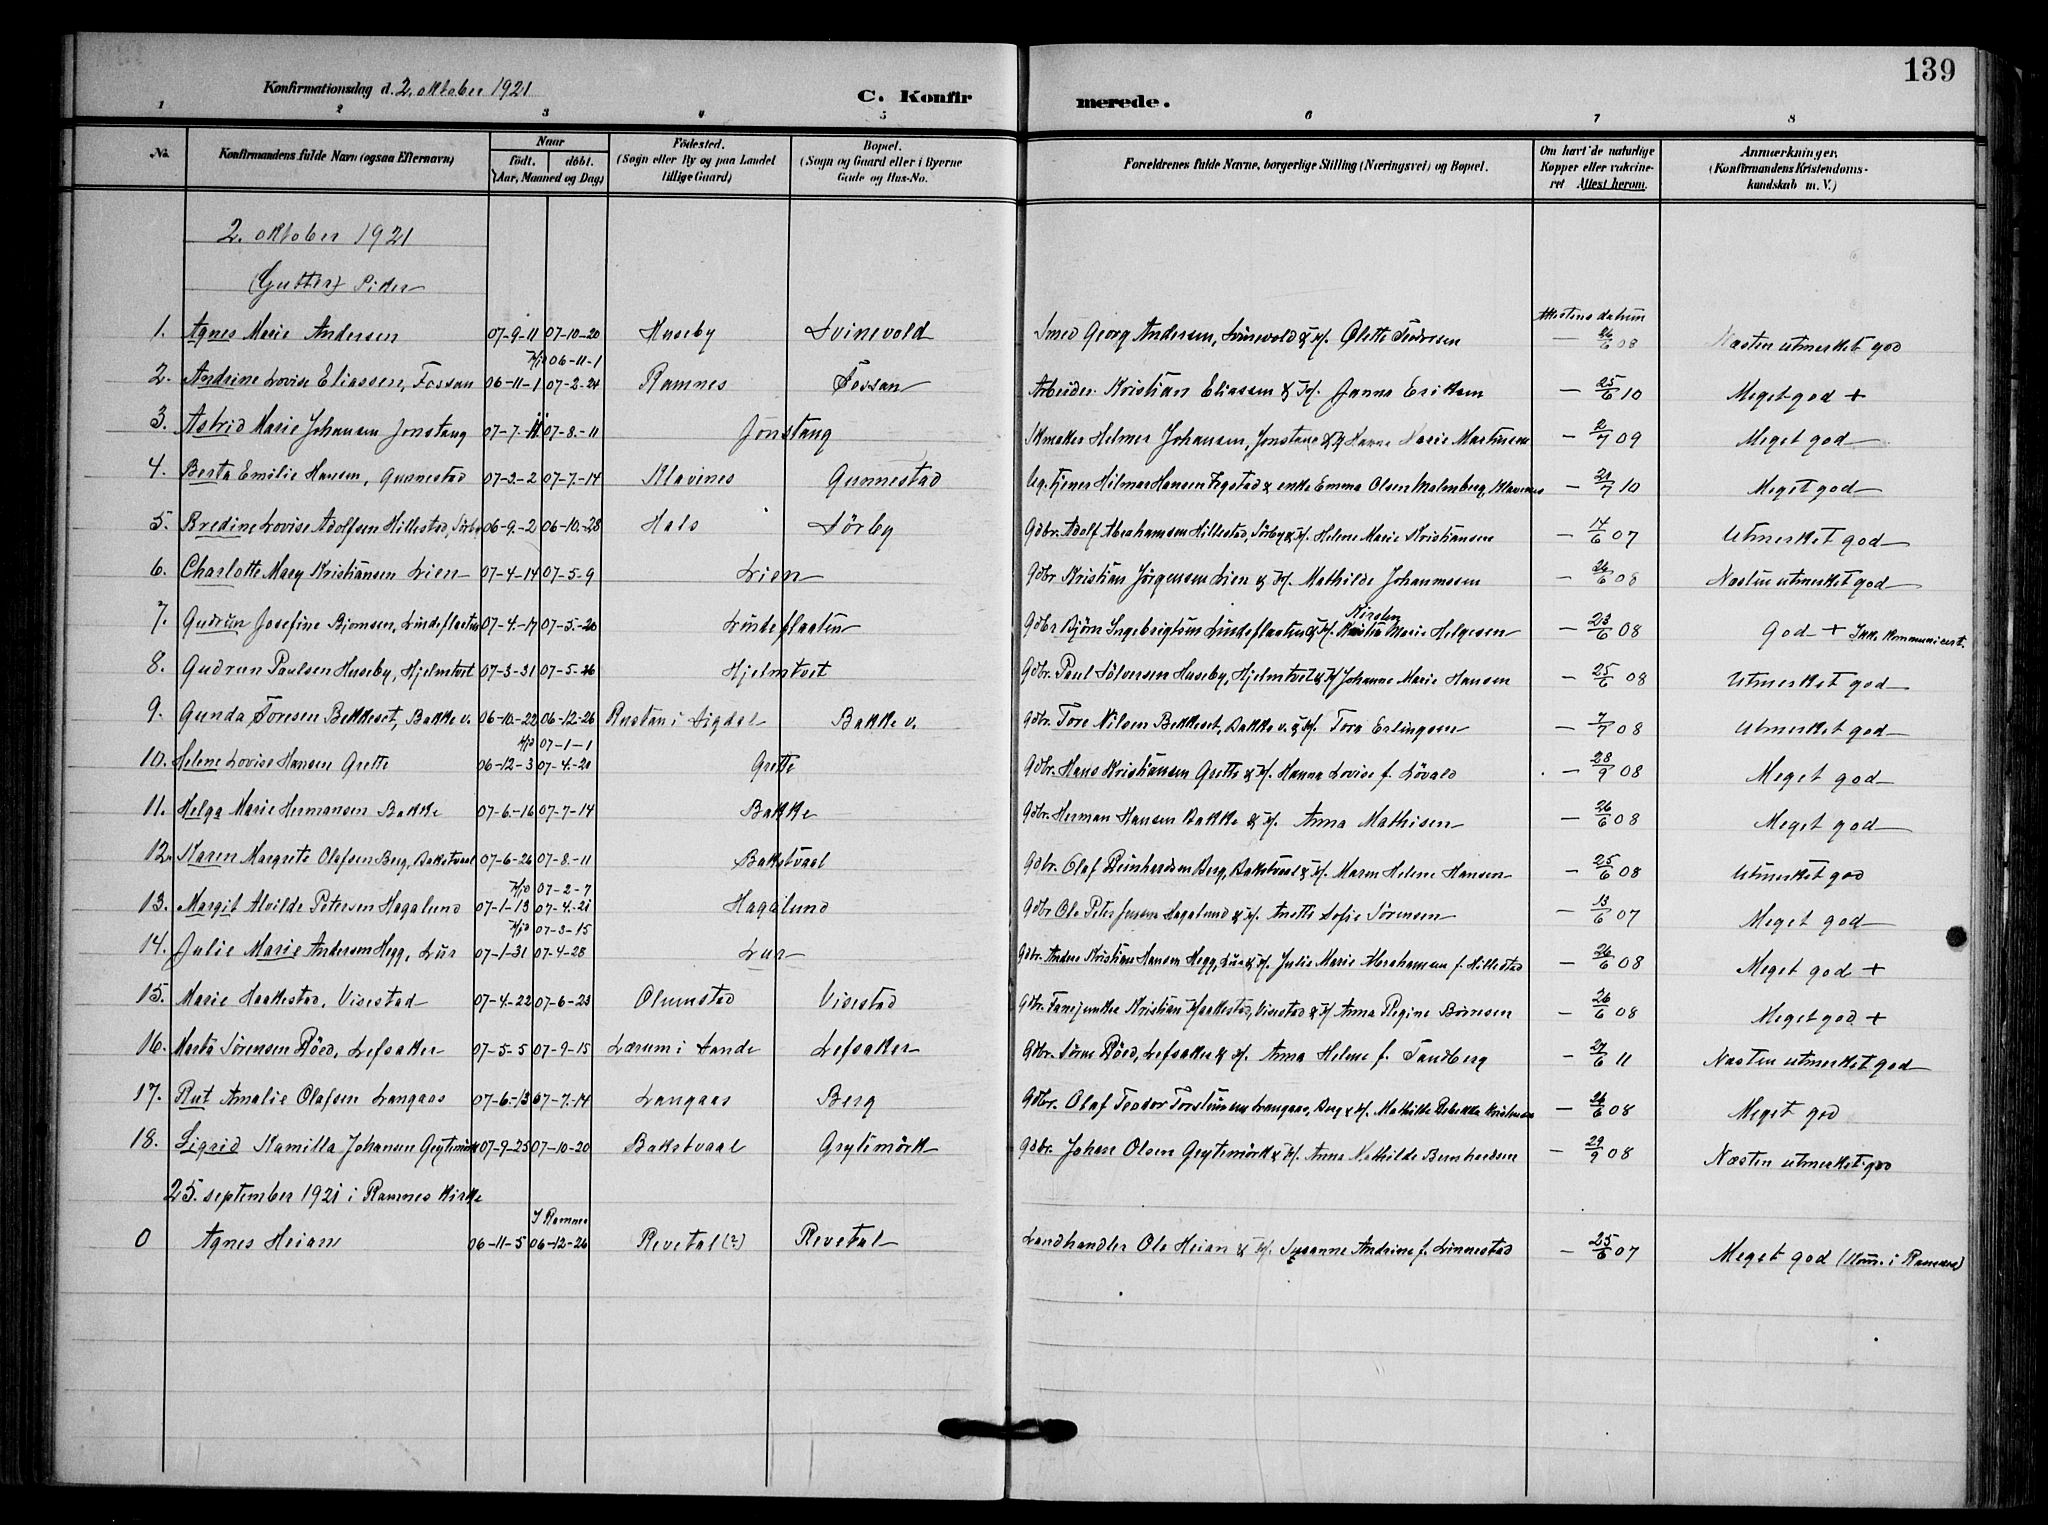 139
Konfirmationsdag d. 2. oktober 1921
C. Konfirmerede.
1 2 3 4 5 6 7 8
No. Konfirmandens fulde Navn (ogsaa Efternavn) Naar født. døbt. (Aar, Maaned og Dag) Fødested. (Sogn eller By og paa Landet tillige Gaard) Bopæl. (Sogn og Gaard eller i Byerne Gade og Hus-No. Forældrenes fulde Navne, borgerlige Stilling (Næringsvei) og Bopæl. Om havt de naturlige Kopper eller vakcineret Attest herom. Anmærkninger. (Konfirmandens Kristendomskundskab m. V.)
2. oktober 1921
(Gutter) Piker
Attestens datum
1. Agnes Marie Andersen 07-9-11 07-10-20 Huseby Svinevold Smed Georg Andersen, Svinevold & H. Olette — 26/6 08 Næsten utmerket god
Hjd 06-11-1
2. Andrine Lovise Eliassen, Fossan 06-11-1 07-2-24 Ramnes Fossan Arbeider Kristian Eliassen & H. Janna Eriksen — 25/6 10 Meget god +
3. Astrid Marie Johansen Jonstang 07-7-11 07-8-11 Jonstang Skmaker Helmer Johansen, Jonstang & H. Marie Martinsen — 2/7 09 Meget god
4. Berta Emilie Hansen, Gunnestad 07-3-2 07-7-14 Klavines Gunnestad Ug. tjener Hilmar Hansen & enke Emma Olsen Malmberg, Klavenes — 29/7 10 Meget god
5. Bredine Lovise Adolfsen Hillestad, Sörby 06-9-2 06-10-28 Hals Sörby Gdbr. Adolf Abrahamsen Hillestad, Sörby & H. Helene Marie Kristiansen — 14/6 07 Utmerket god
6. Charlotte Mary Kristiansen Lien 07-4-14 07-5-9 Lien Gdbr Kristian Jörgensen Lien & H. Mathilde Johannesen — 26/6 08 Næsten utmerket god
7. Gudrun Josefine Bjornsen, Lindeflaaten 07-4-17 07-5-20 Lindeflaaten Gdbr Björn Ingebrigtsen Lindeflaaten & H. Kirsten Marie Helgesen — 23/6 08 God + Ikke kommunicert.
8. Gudrun Paulsen Huseby, Hjelmtvet 07-3-31 07-5-26 Hjelmtvet Gdbr. Paul Sölvesen Huseby, Hjelmtvet & H. Johanne Marie Hansen — 25/6 08 Utmerket god
9. Gunda Toresen Bekkeset, Bakke v. 06-10-22 06-12-26 Rustan i Sigdal Bakke v. Gdbr. Tore Nilsen Bekkeset, Bakke v. & H. Tora Erlingsen — 7/7 08 Utmerket god
Hjd 07-1-1
10. Helene Lovise Hansen Grette 06-12-3 07-4-21 Grette Gdbr. Hans Kristiansen Grette & H. Hanna Lovise f. Lövald — 28/9 08 Meget god
11. Helga Marie Hermansen Bakke 07-6-16 07-7-14 Bakke Gdbr. Herman Hansen Bakke & H. Anna Mathisen — 26/6 08 Meget god
12. Karen Margrete Olafsen Berg, Bakstvaal 07-6-26 07-8-11 Bakstvaal Gdbr. Olaf Reinhardsen Berg, Bakstvaal & H. Maren Helene Hansen — 25/6 08 Utmerket god
Hjd 07-2-7
13. Margit Alvilde Petersen Hagalund 07-1-13 07-4-21 Hagalund Gdbr Ole Peter Jensen Hagalund & H. Anette Sofie Sörensen — 13/6 07 Meget god
Hjd 07-3-15
14. Julie Marie Andersen Hegg, Lur 07-1-31 07-4-28 Lur Gdbr. Anders Kristian Hansen Hegg, Lur & H. Julie Marie Abrahamsen f. Hillestad — 26/6 08 Meget god +
15. Marie Haakestad, Visestad 07-4-22 07-6-23 Olumstad Visestad Gdbr. Fanejunker Kristian Haakestad, Visestad & H. Anna Regine Börresen — 26/6 08 Meget god +
16. Marta Sörensen Röed, Lefsaker 07-5-5 07-9-15 Lærum i Sande Lefsaker Gdbr. Sören Röed, Lefsaker & H. Anna Helene f. Sandberg — 27/6 11 Næsten utmerket god
17. Rut Amalie Olafsen Langaas 07-6-13 07-7-14 Langaas Berg Gdbr. Olaf Teodor Torstensen Langaas, Berg & H. Mathilde Rebekka Kristensen — 26/6 08 Meget god
18. Sigrid Kamilla Johansen Grytimörk 07-9-25 07-10-20 Bakstvaal Grytimörk Gdbr. Johan Olsen Grytimörk & H. Anna Mathilde Bernhardsen — 29/9 08 Næsten utmerket god
25. september 1921 i Ramnes kirke
I Ramnes
0 Agnes Heian 06-11-5 06-12-26 Revetal (?) Revetal Landhandler Ole Heian & H. Susanne Andrine f. Linnestad — 25/6 07 Meget god (Kom. i Ramnes)